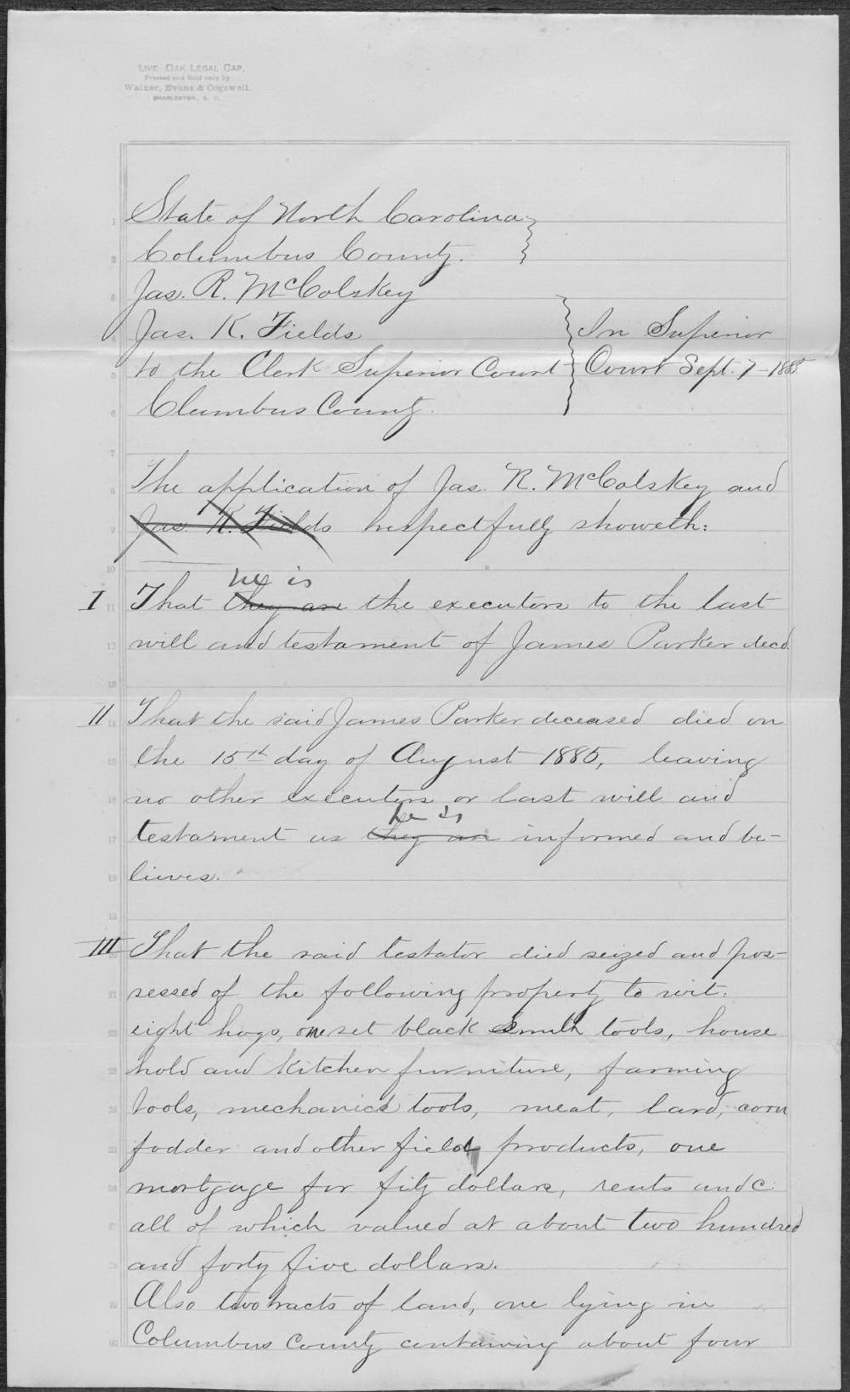 LIVE OAK LEGAL CAP,
Printed and Sold only by
Walker, Evans & Cogswell,
CHARLESTON, S. C.
State of North Carolina
Columbus County.
Jas. R. McColskey
Jas. K. Fields
to the Clerk Superior Court
Clumbus County.
In Superior
Court Sept. 7-1885
The application of Jas. R. McColskey and
Jas. K. Fields respectfully showeth:
he is
I That they are the executors to the last
will and testament of James Parker decd.
II That the said James Parker deceased died on
the 15th day of August 1885, leaving
no other executors or last will and
he is
testament as they are informed and be-
lieves.
III That the said testator died seized and pos-
sessed of the following property to wit:
eight hogs, one set black smith tools, house
hold and kitchen furniture, farming
tools, mechanics tools, meat, lard, corn
fodder and other field products, one
mortgage for fifty dollars, rents and c.
all of which valued at about two hundred
and forty five dollars.
Also two tracts of land, one lying in
Columbus County containing about four